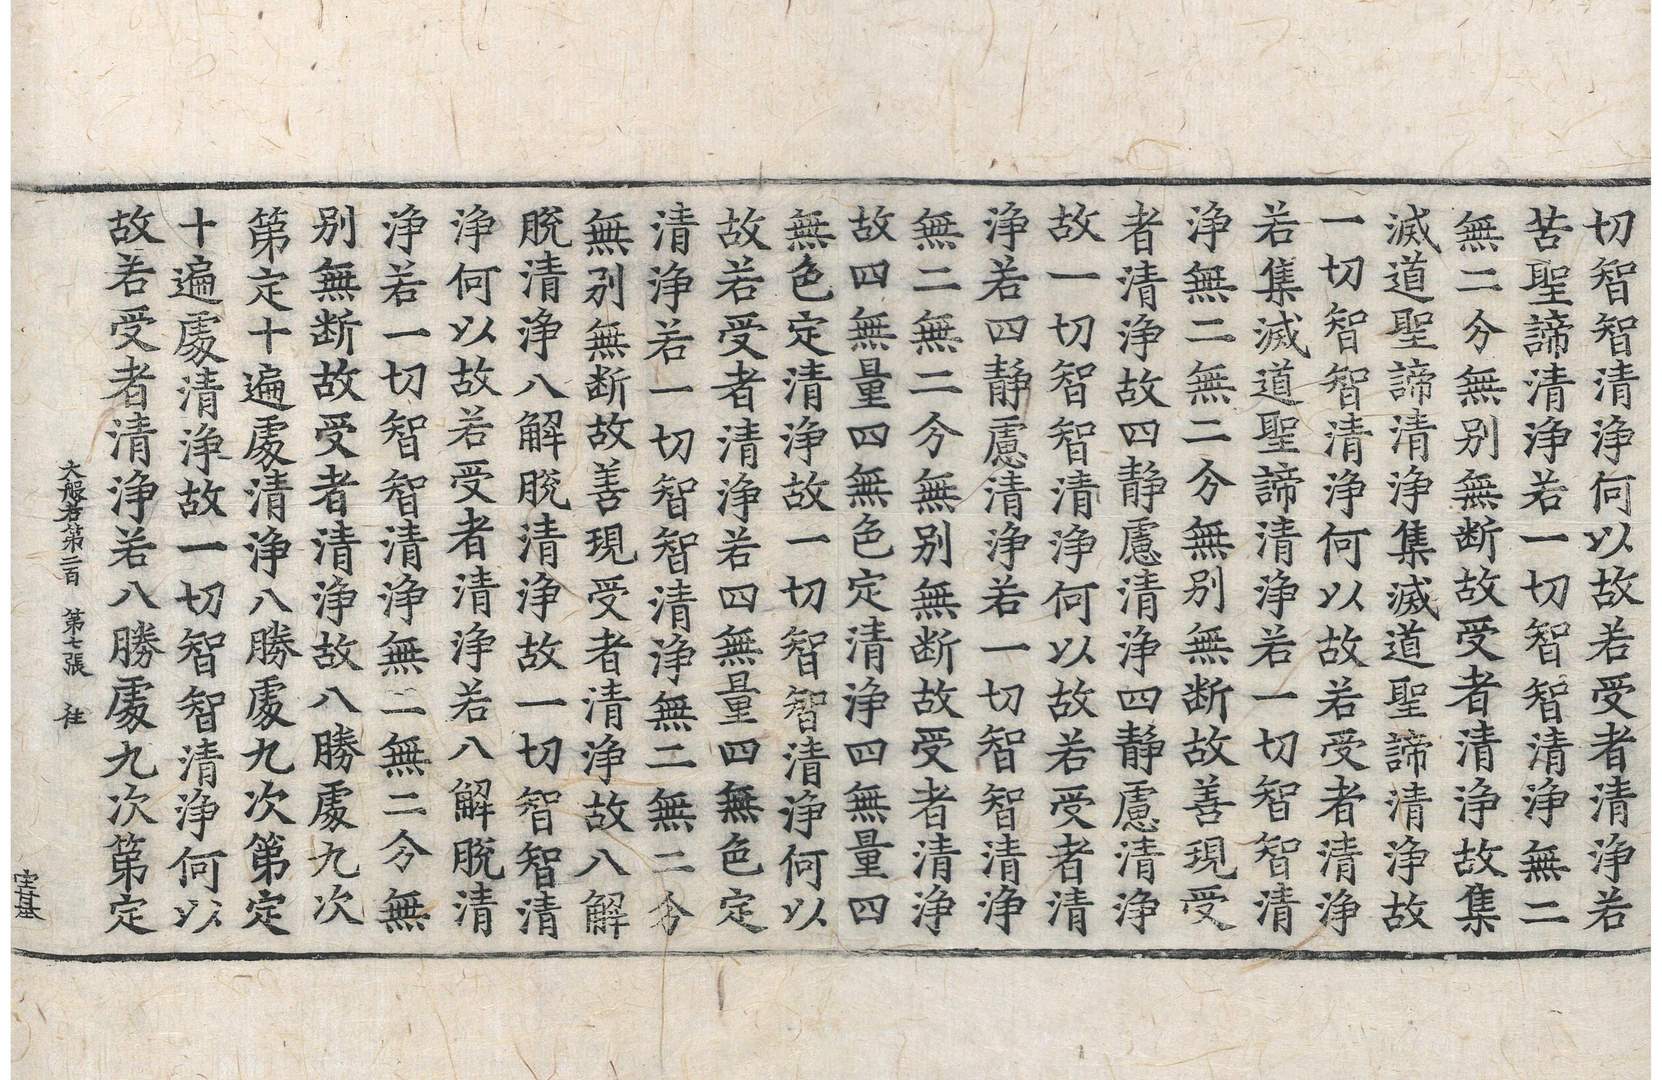 切智智清淨何以故若受者清淨若
苦聖諦清淨若一切智智清淨無二
無二分無别無断故受者清淨故集
滅道聖諦清淨集滅道聖諦清淨故
一切智智清淨何以故若受者清淨
若集滅道聖諦清淨若一切智智清
淨無二無二分無别無断故善現受
者清淨故四静慮清淨四静慮清淨
故一切智智清淨何以故若受者清
淨若四静慮清淨若一切智智清淨
無二無二分無别無断故受者清淨
故四無量四無色定清淨四無量四
無色定清淨故一切智智清淨何以
故若受者清淨若四無量四無色定
清淨若一切智智清淨無二無二分
無别無断故善現受者清淨故八解
脱清淨八解脱清淨故一切智智清
淨何以故若受者清淨若八解脱清
淨若一切智智清淨無二無二分無
别無断故受者清淨故八勝處九次
第定十遍處清淨八勝處九次第定
十遍處清淨故一切智智清淨何以
故若受者清淨若八勝處九次第定
大般若第二百 第七張